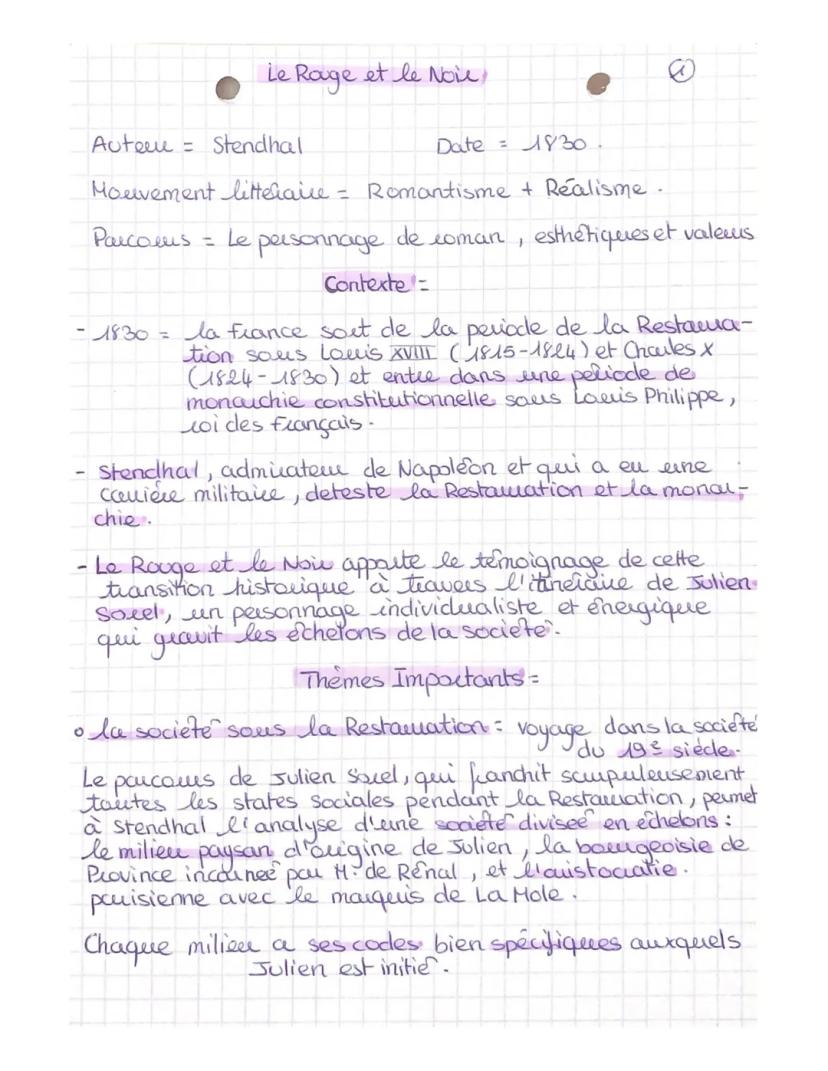 Le Rouge et le Noir
1
Auteur = Stendhal Date = 1830.
Mouvement littéraire = Romantisme + Réalisme.
Parcours = Le personnage de roman, esthétiques et valeurs
Contexte =
- 1830 = la france sort de la periode de la Restaura-
tion sous Louis XVIII (1815-1824) et Charles X
(1824-1830) et entre dans une période de
monarchie constitutionnelle sous Louis Philippe,
roi des français.
- Stendhal, admirateur de Napoléon et qui a eu une
carrière militaire, deteste la Restauration et la monar-
chie.
- Le Rouge et le Noir apporte le témoignage de cette
transition historique à travers l'itinéraire de Julien
Sorel, un personnage individualiste et énergique
qui gravit les échelons de la société.
Thèmes Importants =
o la société sous la Restauration = voyage dans la société
du 19e siècle.
Le parcours de Julien Sorel, qui franchit scrupuleusement
toutes les states sociales pendant la Restauration, permet
à Stendhal l'analyse d'une société divisée en échelons :
le milieu paysan d'origine de Julien, la bourgeoisie de
Province incarnée par M. de Rênal, et l'aristocratie.
parisienne avec le marquis de La Mole.
Chaque milieu a ses codes bien spécifiques auxquels
Julien est initié.